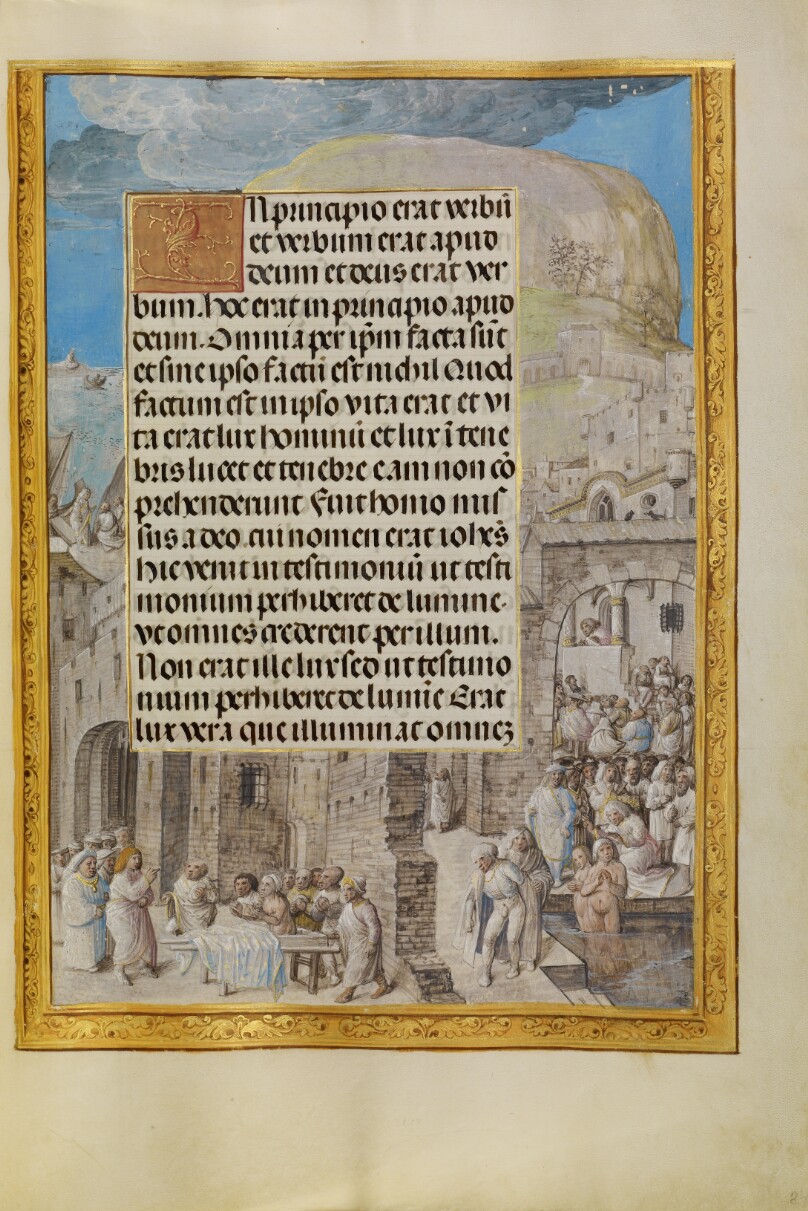 In principio erat verbū
et verbum erat apud
deum et deus erat ver
bum. hoc erat in principio apud
deum. Omnia per ip̄m facta sūt
et sine ipso factū est nichil Quod
factum est in ipso vita erat et vi
ta erat lux hominū et lux ī tene
bris lucet et tenebre eam non cō
prehenderunt Fuit homo mis
sus a deo cui nomen erat iohēs
hic venit in testimoniū ut testi
monium perhiberet de lumine
vt omnes crederent per illum.
Non erat ille lux sed ut testimo
nium perhiberet de lumīe Erat
lux vera que illuminat omneʒ